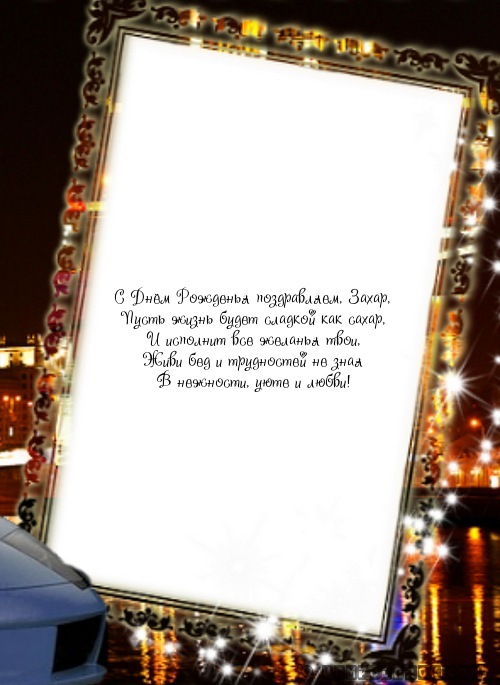 С Днем Рожденья поздравляем, Захар,
Пусть жизнь будет сладкой как сахар,
И исполнит все желанья твои,
Живи бед и трудностей не зная
В нежности, уюте и любви!